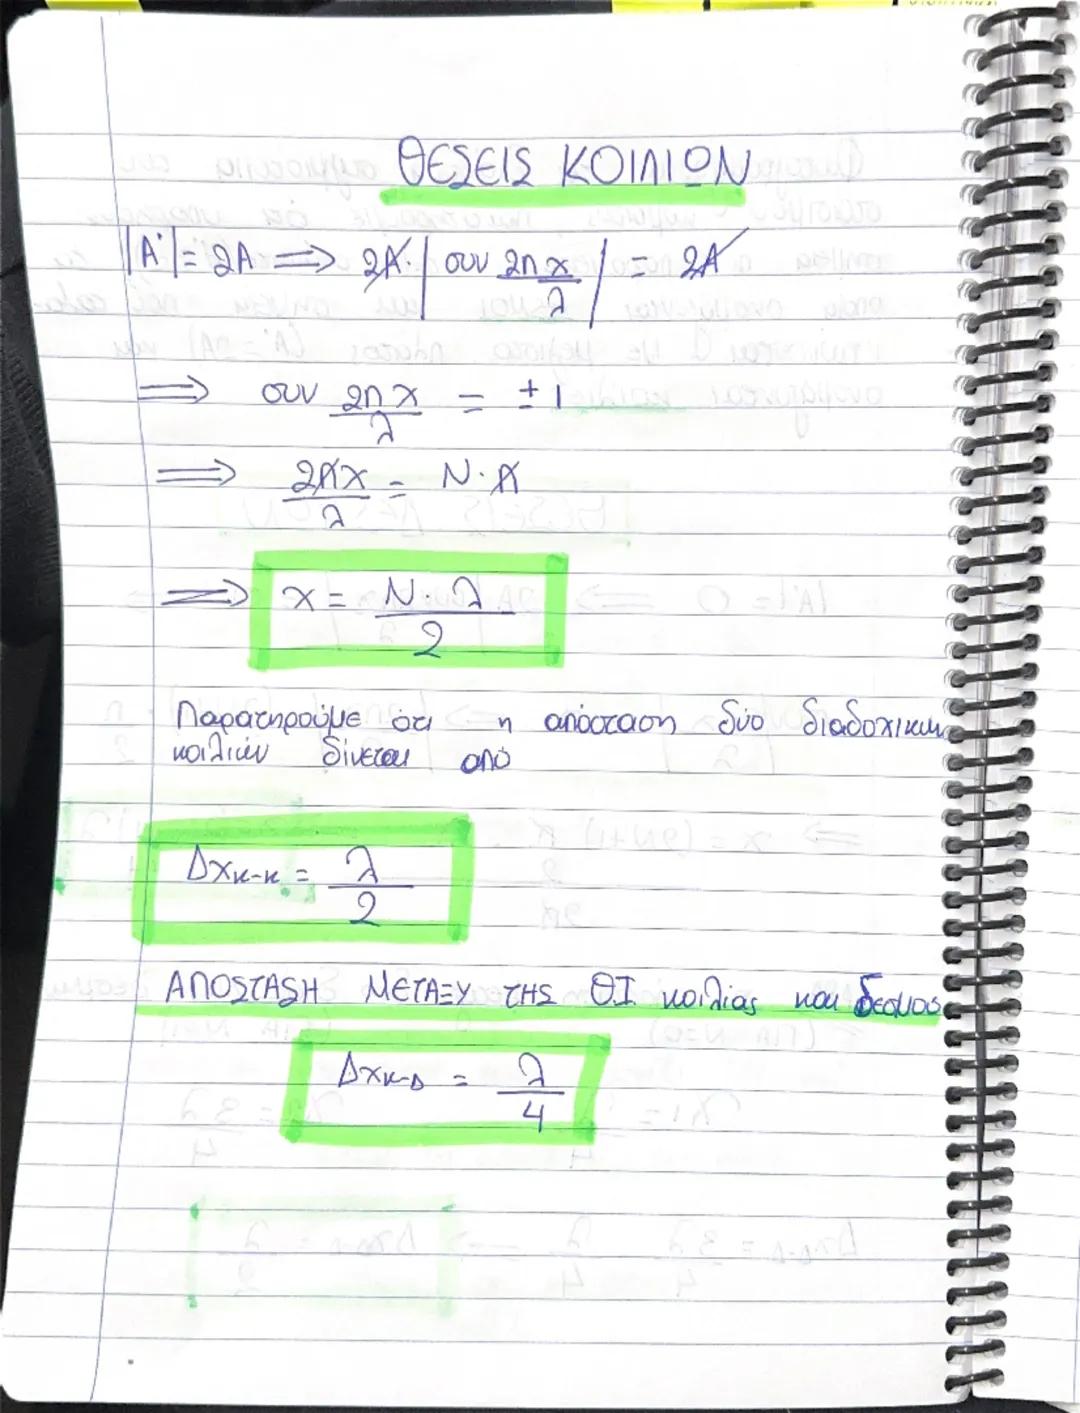 ΘΕΣΕΙΣ ΚΟΙΛΙΩΝ
|A'| = 2A ⟹ 2A·|συν 2πx/λ| = 2A
⟹ συν 2πx/λ = ±1
⟹ 2πx/λ = N·π
⟹ x = N·λ/2
Παρατηρούμε ότι η απόσταση δύο διαδοχικών
κοιλιών δίνεται από
Δxκ-κ = λ/2
ΑΠΟΣΤΑΣΗ ΜΕΤΑΞΥ ΤΗΣ Θ.Ι. κοιλίας και δεσμού
Δxκ-Δ = λ/4